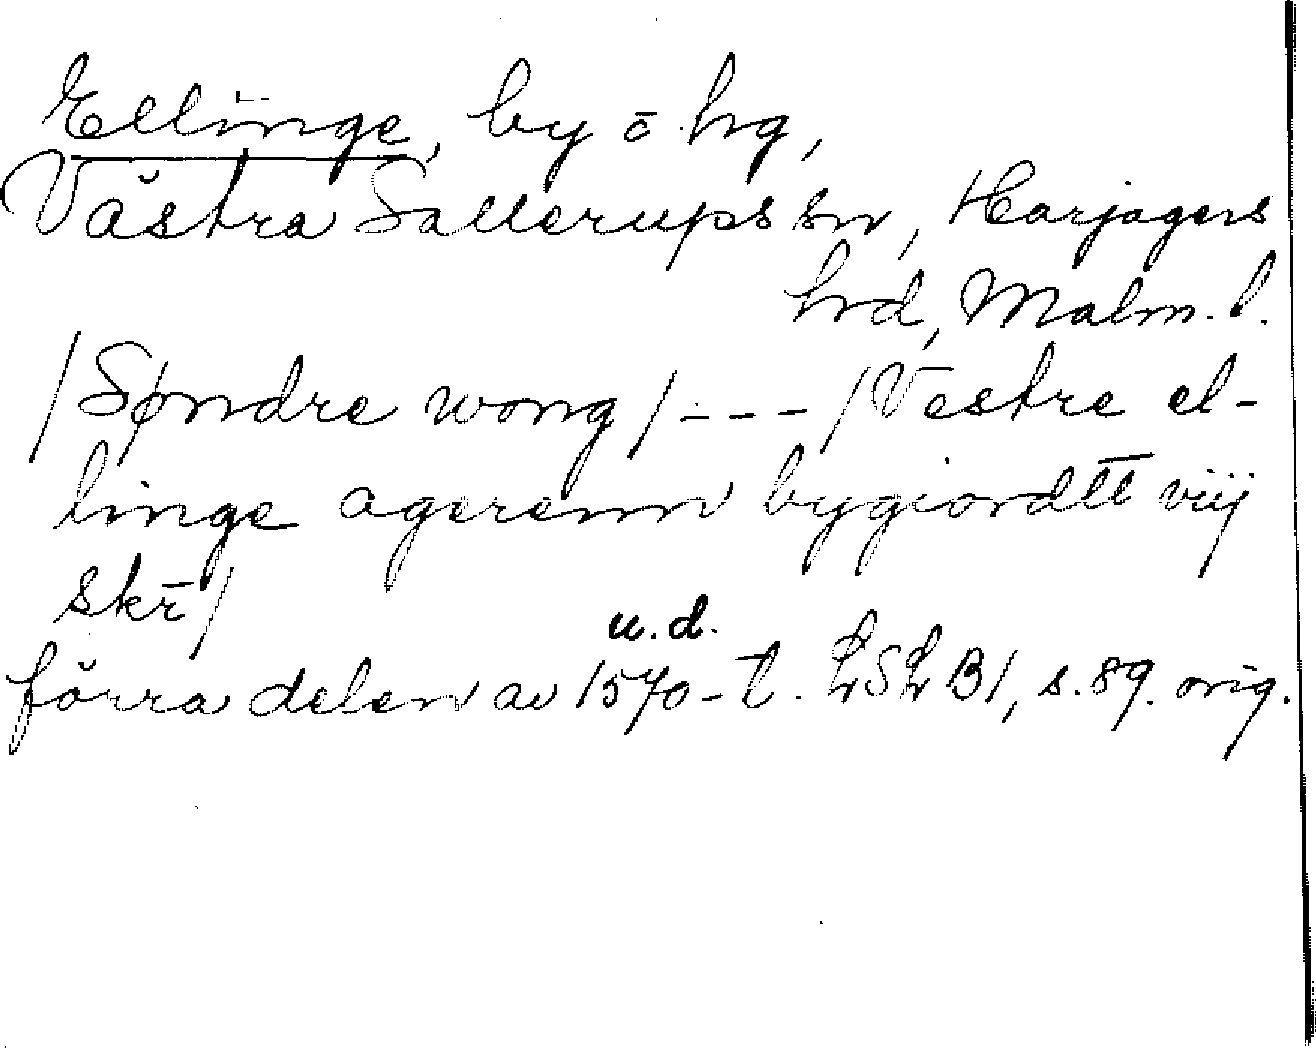 Ellinge, by o. hrg,
Västra Sallerups sn, Harjagers
hrd, Malm. l.
/Søndre wong/ - - - /Vestre el-
linge agerenn bygiordtt viij
skr̄/
u.d.
förra delen av 1570-t. LSL B1, s. 89. orig.